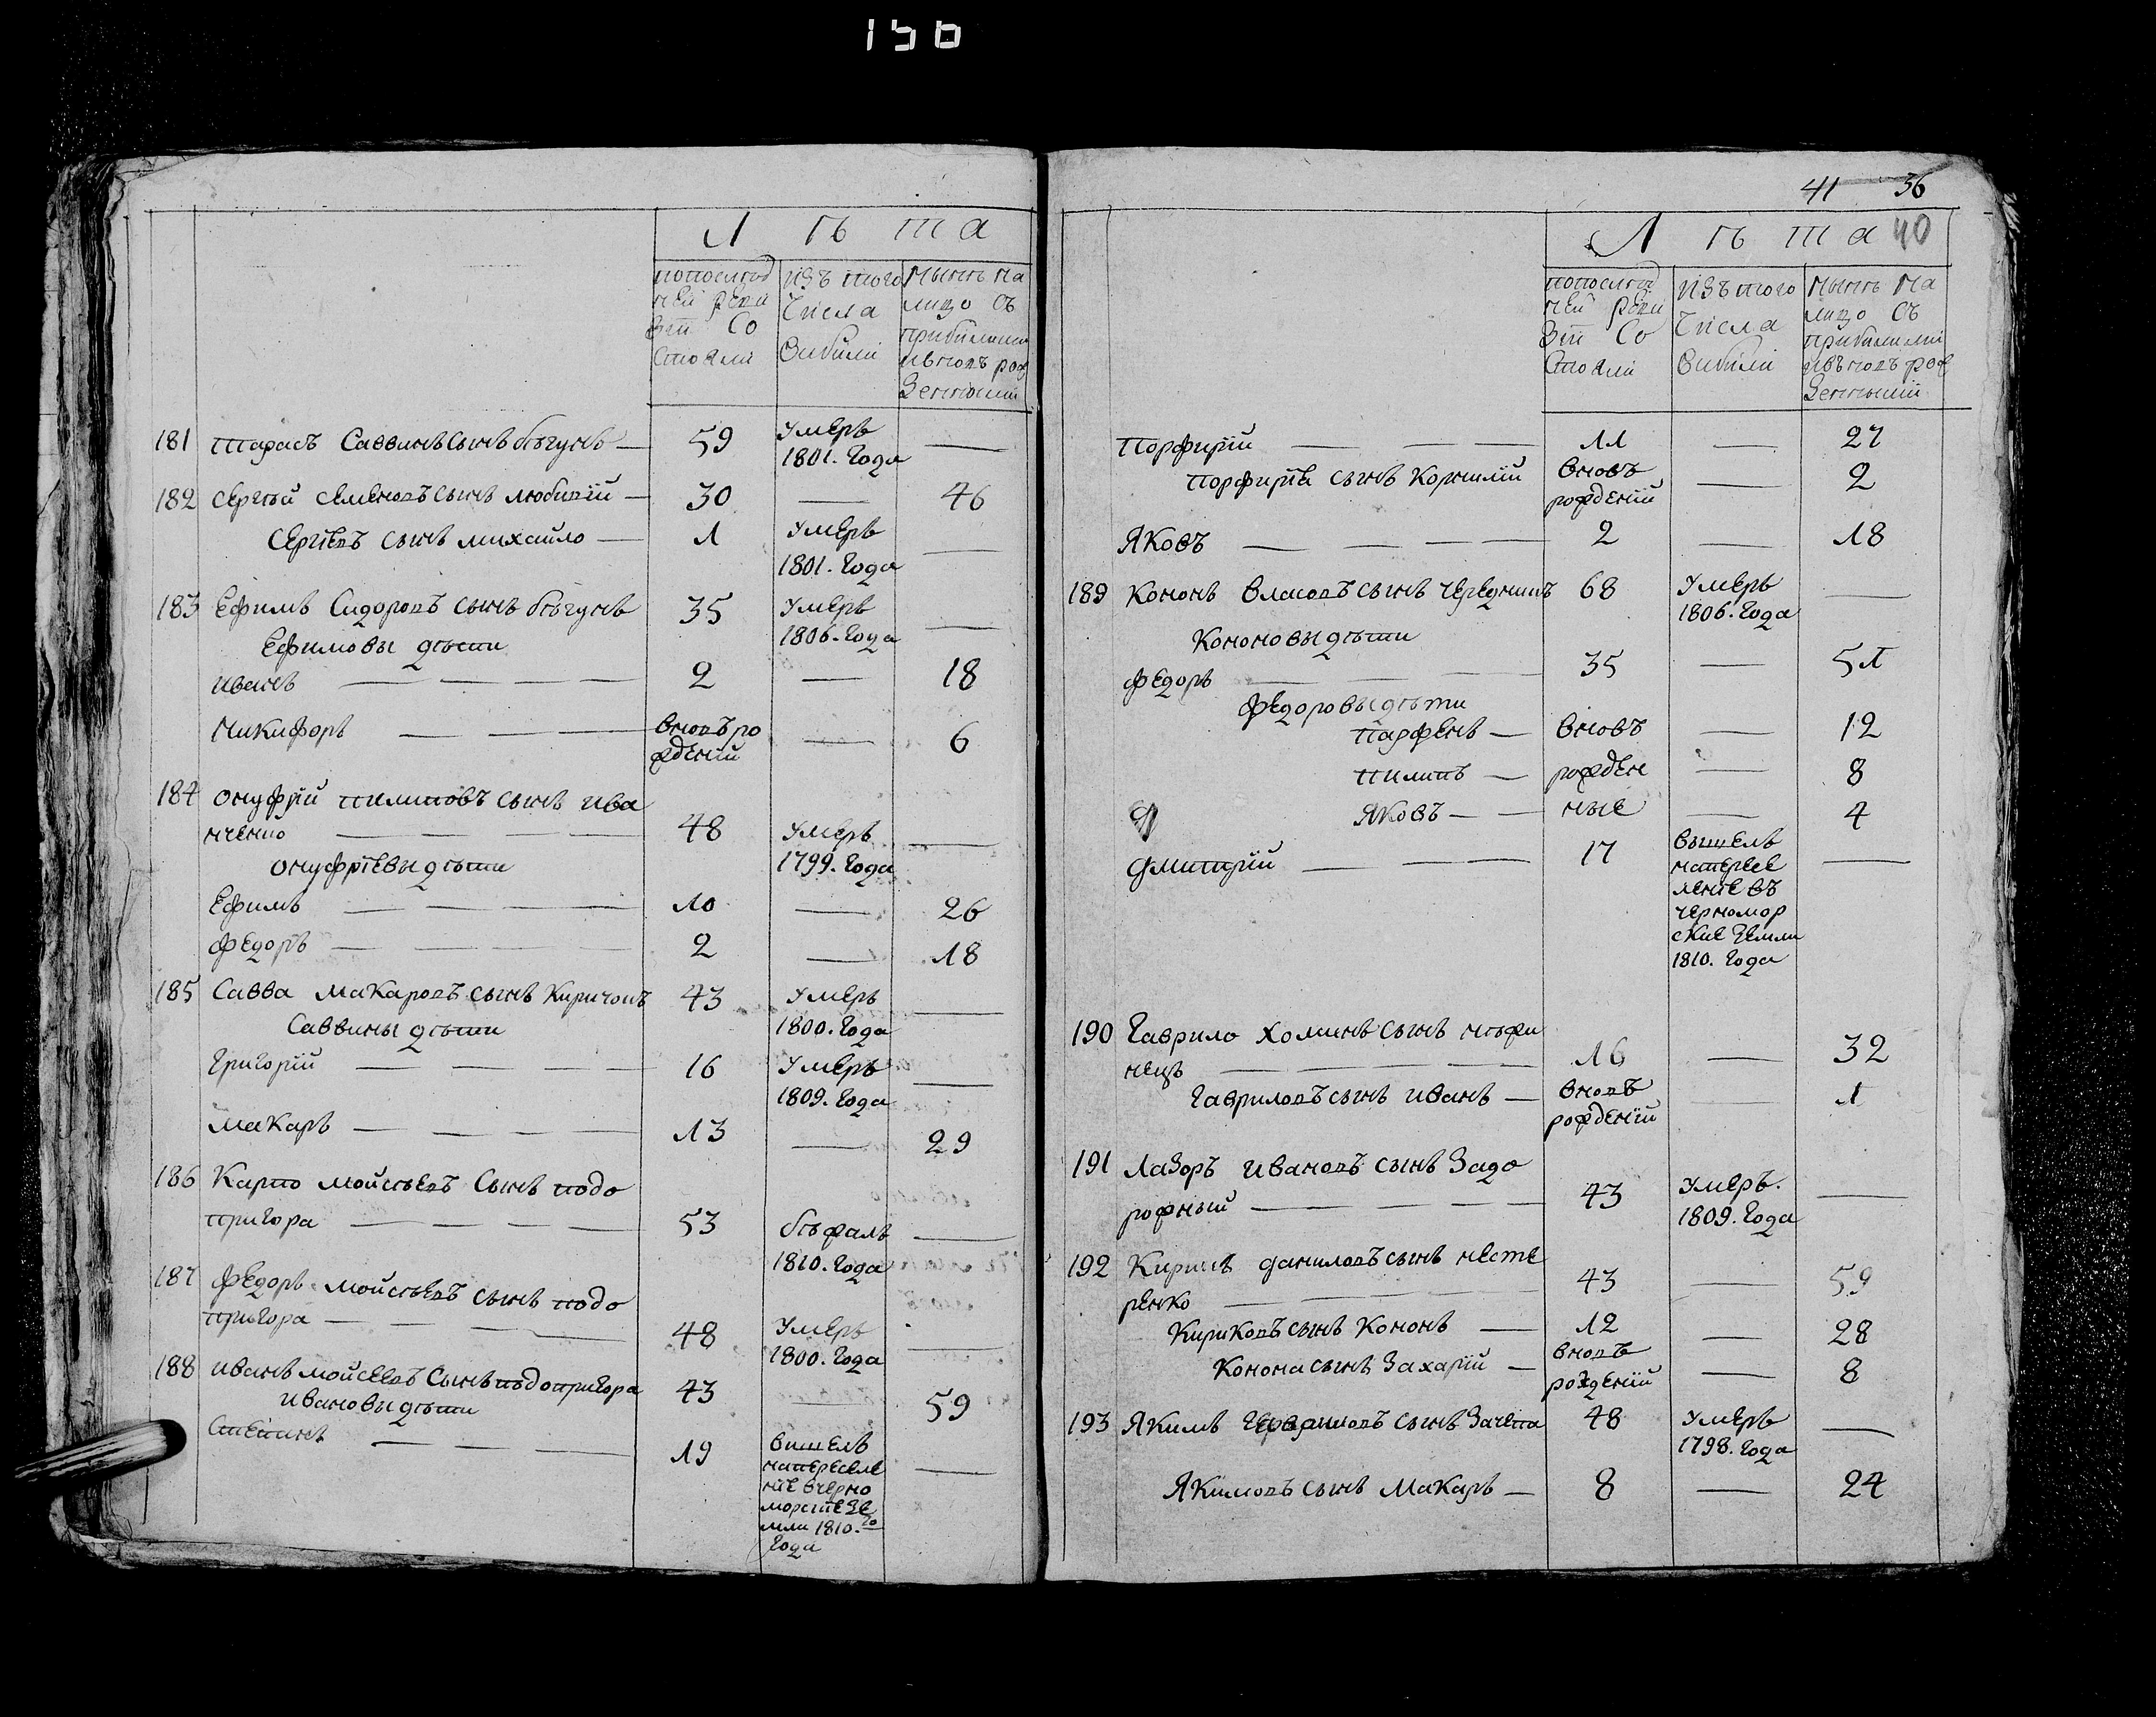 156
Л ѣ т а
попослѣд
ней реви
зіи Со
стояли
изъ того
Числа
Выбыли
Нынѣ на
лицо Съ
прибылыми
и вновь рож
денными
181 Тарасъ Саввинъ Сынъ бѣгунъ — 59 Умеръ —
1801. Года
182 Сергѣй Семеновъ Сынъ Любицкій — 30 — 46
Сергіевъ Сынъ Михайло — 1 Умеръ —
1801. Года
183 Ефимъ Сидоровъ сынъ бѣгунъ 35 Умеръ —
1806. Года
Ефимовы дѣти
иванъ — — — — 2 — 18
Никифоръ — — — вновь ро — 6
жденій
184 Онуфрій Пилиповъ сынъ ива
нченко — — — — 48 Умеръ —
1799. Года
Онуфріевы дѣти
Ефимъ — — — — 10 — 26
Федоръ — — — — 2 — 18
185 Савва Макаровъ сынъ Киричокъ 43 Умеръ —
1800. Года
Саввины дѣти
Григорій — — — — 16 Умеръ —
1809. Года
Макаръ — — — — 13 — 29
186 Карпо Мойсѣевъ Сынъ подо
пригора — — — — 53 бѣжалъ —
1810. Года
187 Федоръ Мойсѣевъ сынъ подо
пригора — — — — 48 Умеръ —
1800. Года
188 иванъ мойсеевъ Сынъ подопригора 43 — 59
ивановы дѣти
Степанъ — — — 19 вишелъ —
напереселе
ніе вчерно
морскіе зе
мли 1810.го
Года
41 36
40
Л ѣ т а
попослѣд
ней реви
зіи Со
стояли
Изъ того
Числа
Выбыли
Нынѣ на
лицо Съ
прибылыми
и вновь рож
денными
Порфирій — — — 11 — 27
Порфирія сынъ Корнилій вновь — 2
рожденій
Яковъ — — — — 2 — 18
189 Кононъ Власовъ сынъ Чередникъ 68 Умеръ —
1806. Года
Кононовы дѣти
Федоръ — — — 35 — 51
Федоровы дѣти
Парфенъ — вновь — 12
Пилипъ — рожден — 8
Яковъ — — ные — 4
Дмитрій — — — 17 вышелъ —
наперееле
леніе въ
черномор
скіе Земли
1810. Года
190 Гаврило Хоминъ сынъ нѣжи
нецъ — — — — — 16 — 32
Гавриловъ сынъ иванъ — вновь — 1
рожденій
191 Лазоръ ивановъ сынъ Задо
рожный — — — — 43 Умеръ. —
1809. Года
192 Кирикъ Даниловъ сынъ Несте
ренко — — — — 43 — 59
Кириковъ сынъ Кононъ — 12 — 28
Конона сынъ Захарій — вновь — 8
рожденій
193 Якимъ сынъ Зачепа 48 Умеръ —
1798. Года
Якимовъ сынъ Макаръ — 8 — 24